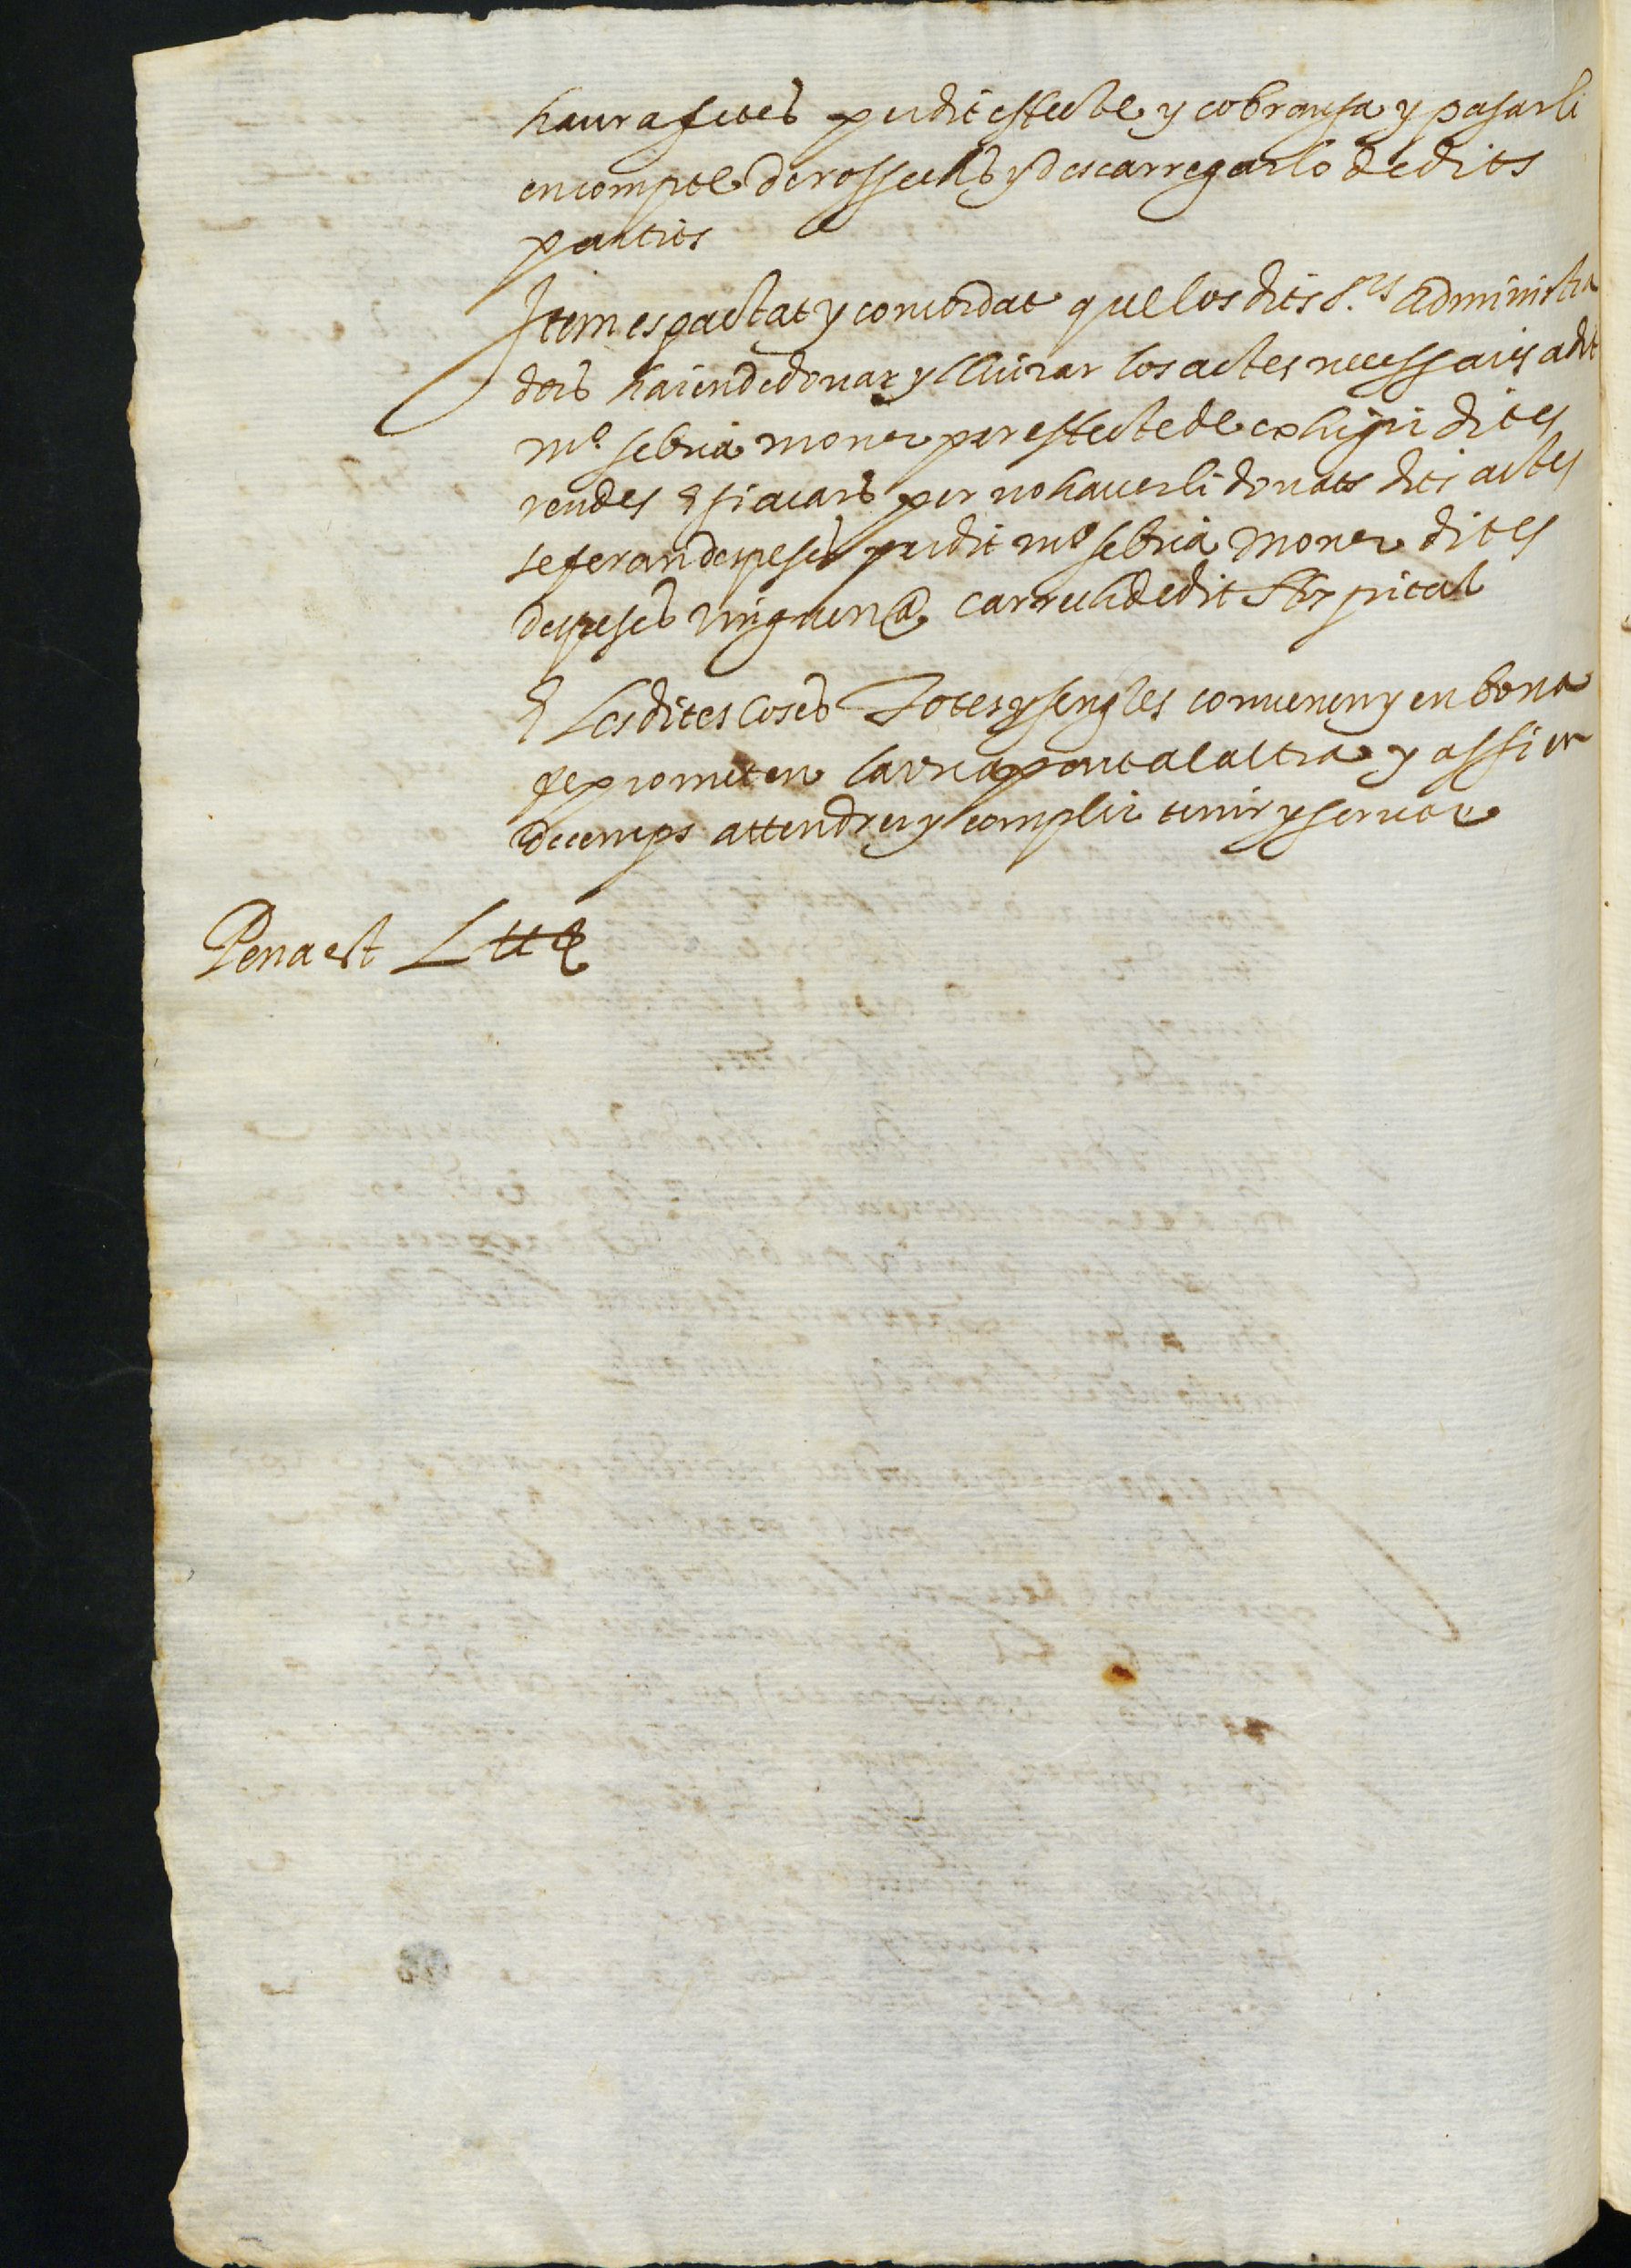 haura fetes per dit effecte y cobransa y pasarli
en compte de rossechs y descarregarlo de dits
partits
Item es pactat y concordat que los dits S.rs Administra
dors haien de donar y lliurar los actes necessaris a dit
m.o sebria moner per effecte de exhigir dites
rendes E si acars per no haverli donats dits actes
se feran despeses per dit m.o sebria moner dites
despeses vinguen a carrech de dit Hospital
E Les dites Coses Totes y sengles convenen y en bona
fe prometen la una part a la altra y assi en
de temps attendrer y complir tenir y servar
Pena est L